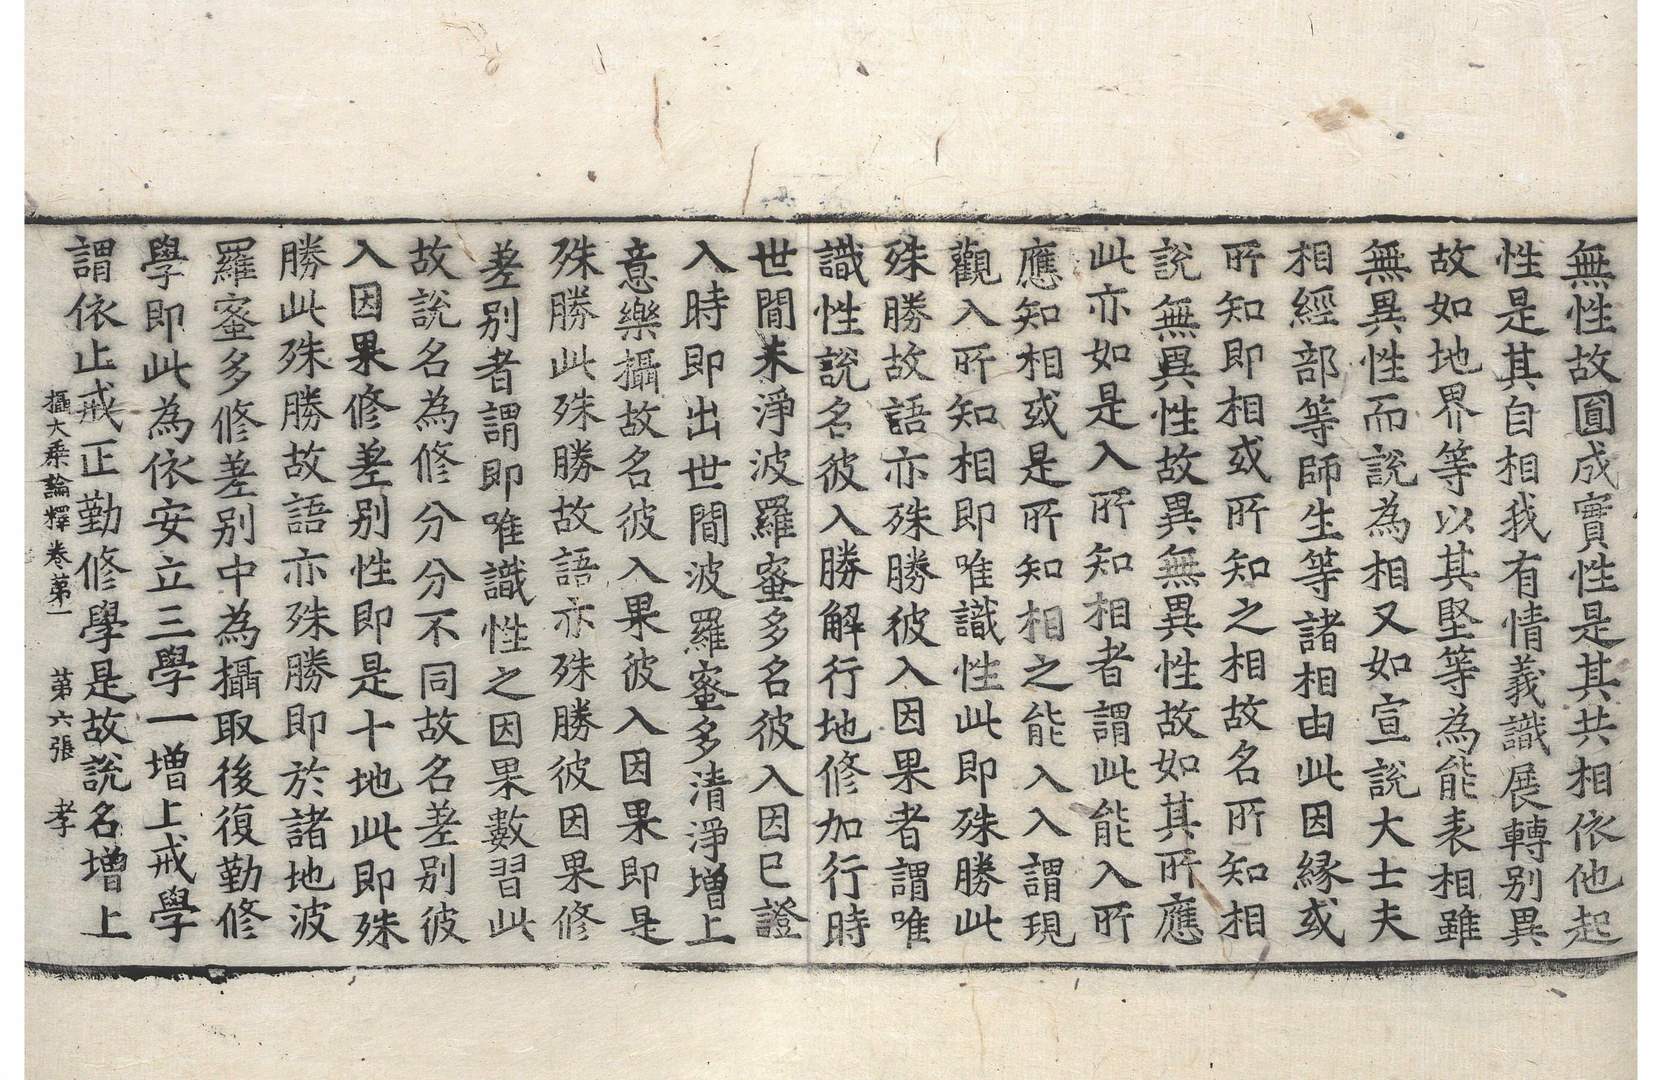 無性故圓成實性是其共相依他起
性是其自相我有情義識展轉別異
故如地界等以其堅等為能表相雖
無異性而說為相又如宣說大士夫
相經部等師生等諸相由此因緣或
所知即相或所知之相故名所知相
說無異性故異無異性故如其所應
此亦如是入所知相者謂此能入所
應知相或是所知相之能入入謂現
觀入所知相即唯識性此即殊勝此
殊勝故語亦殊勝彼入因果者謂唯
識性說名彼入勝解行地修加行時
世間未淨波羅蜜多名彼入因已證
入時即出世間波羅蜜多清淨增上
意樂攝故名彼入果彼入因果即是
殊勝此殊勝故語亦殊勝彼因果修
差別者謂即唯識性之因果數習此
故說名為修分分不同故名差別彼
入因果修差別性即是十地此即殊
勝此殊勝故語亦殊勝即於諸地波
羅蜜多修差別中為攝取後復勤修
學即此為依安立三學一增上戒學
謂依止戒正勤修學是故說名增上
攝大乘論釋卷第一 第六張 孝